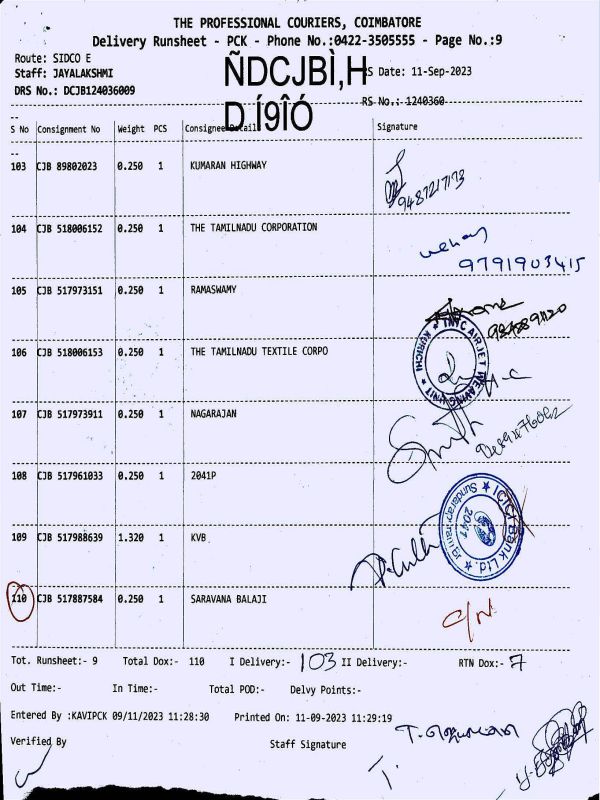 THE PROFESSIONAL COURIERS, COIMBATORE
Delivery Runsheet - PCK - Phone No.:0422-3505555 - Page No.:9
Route: SIDCO E
Staff: JAYALAKSHMI
ÑDCJBÌ,H
RS Date: 11-Sep-2023
DRS No.: DCJB124036009
D.Í9ÎÓ
RS No.: 1240360
S No Consignment No Weight PCS Consignee Detail Signature
103 CJB 89802023 0.250 1 KUMARAN HIGHWAY
9487217173
104 CJB 518006152 0.250 1 THE TAMILNADU CORPORATION
9791903415
105 CJB 517973151 0.250 1 RAMASWAMY
106 CJB 518006153 0.250 1 THE TAMILNADU TEXTILE CORPO
AIRJET WEAVING UNIT ★ KURICHI ★
107 CJB 517973911 0.250 1 NAGARAJAN
108 CJB 517961033 0.250 1 2041P
★ ICICI Bank Ltd. ★
2041
109 CJB 517988639 1.320 1 KVB
110 CJB 517887584 0.250 1 SARAVANA BALAJI
Tot. Runsheet:- 9 Total Dox:- 110 I Delivery:- 103 II Delivery:- RTN Dox:- 7
Out Time:- In Time:- Total POD:- Delvy Points:-
Entered By :KAVIPCK 09/11/2023 11:28:30 Printed On: 11-09-2023 11:29:19
Verified By Staff Signature